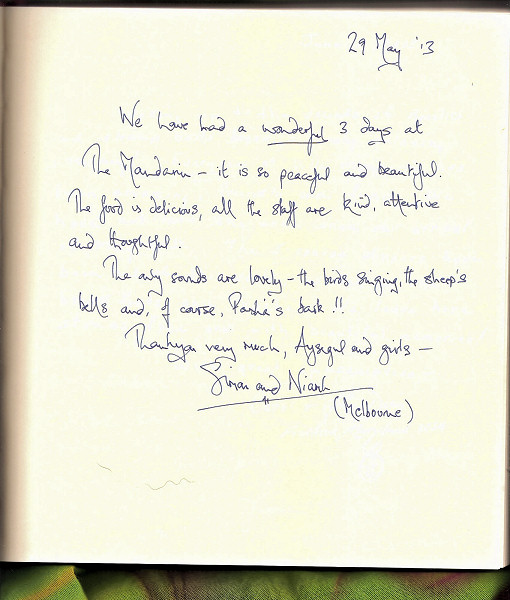 29 May '13
We have had a wonderful 3 days at
The Mandarin – it is so peaceful and beautiful.
The food is delicious, all the staff are kind, attentive
and thoughtful.
The only sounds are lovely – the birds singing, the sheep's
bells and, of course, Pasha's bark !!
Thankyou very much, Aysegul and girls –
Simon and Niamh
(Melbourne)